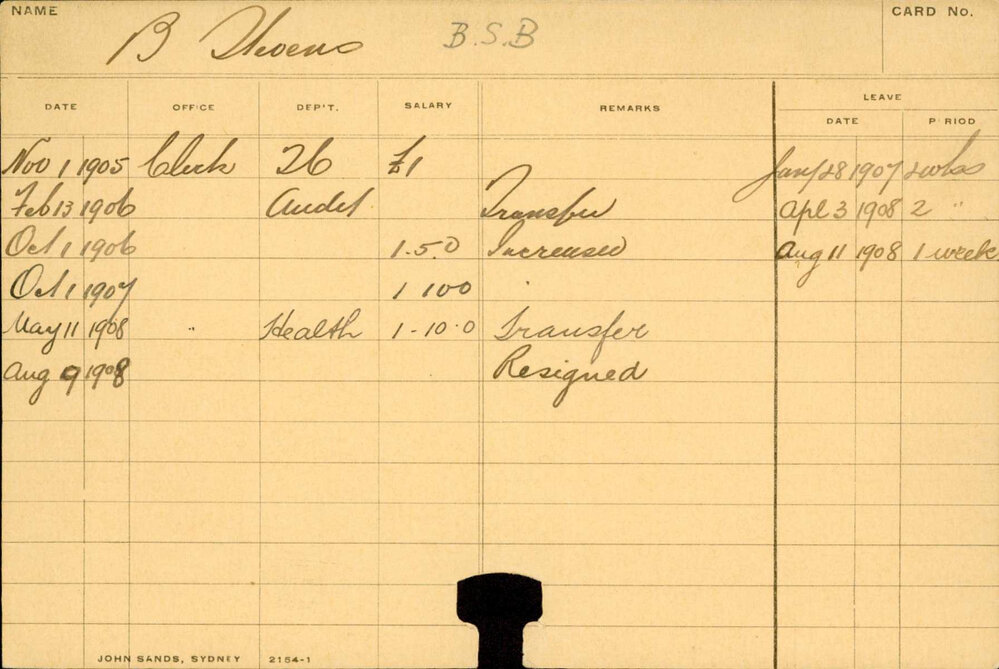 NAME B Stevens B.S.B CARD No.
LEAVE
DATE OFFICE DEP'T. SALARY REMARKS DATE PERIOD
Nov 1 1905 Clerk £1 Jany 28 1907 2 wks
Feb 13 1906 Audit Transfer Apl 3 1908 2 "
Oct 1 1906 1.5.0 Increased Aug 11 1908 1 week
Oct 1 1907 1 10 0
May 11 1908 " Health 1-10.0 Transfer
Aug 9 1908 Resigned
JOHN SANDS, SYDNEY 2154-1